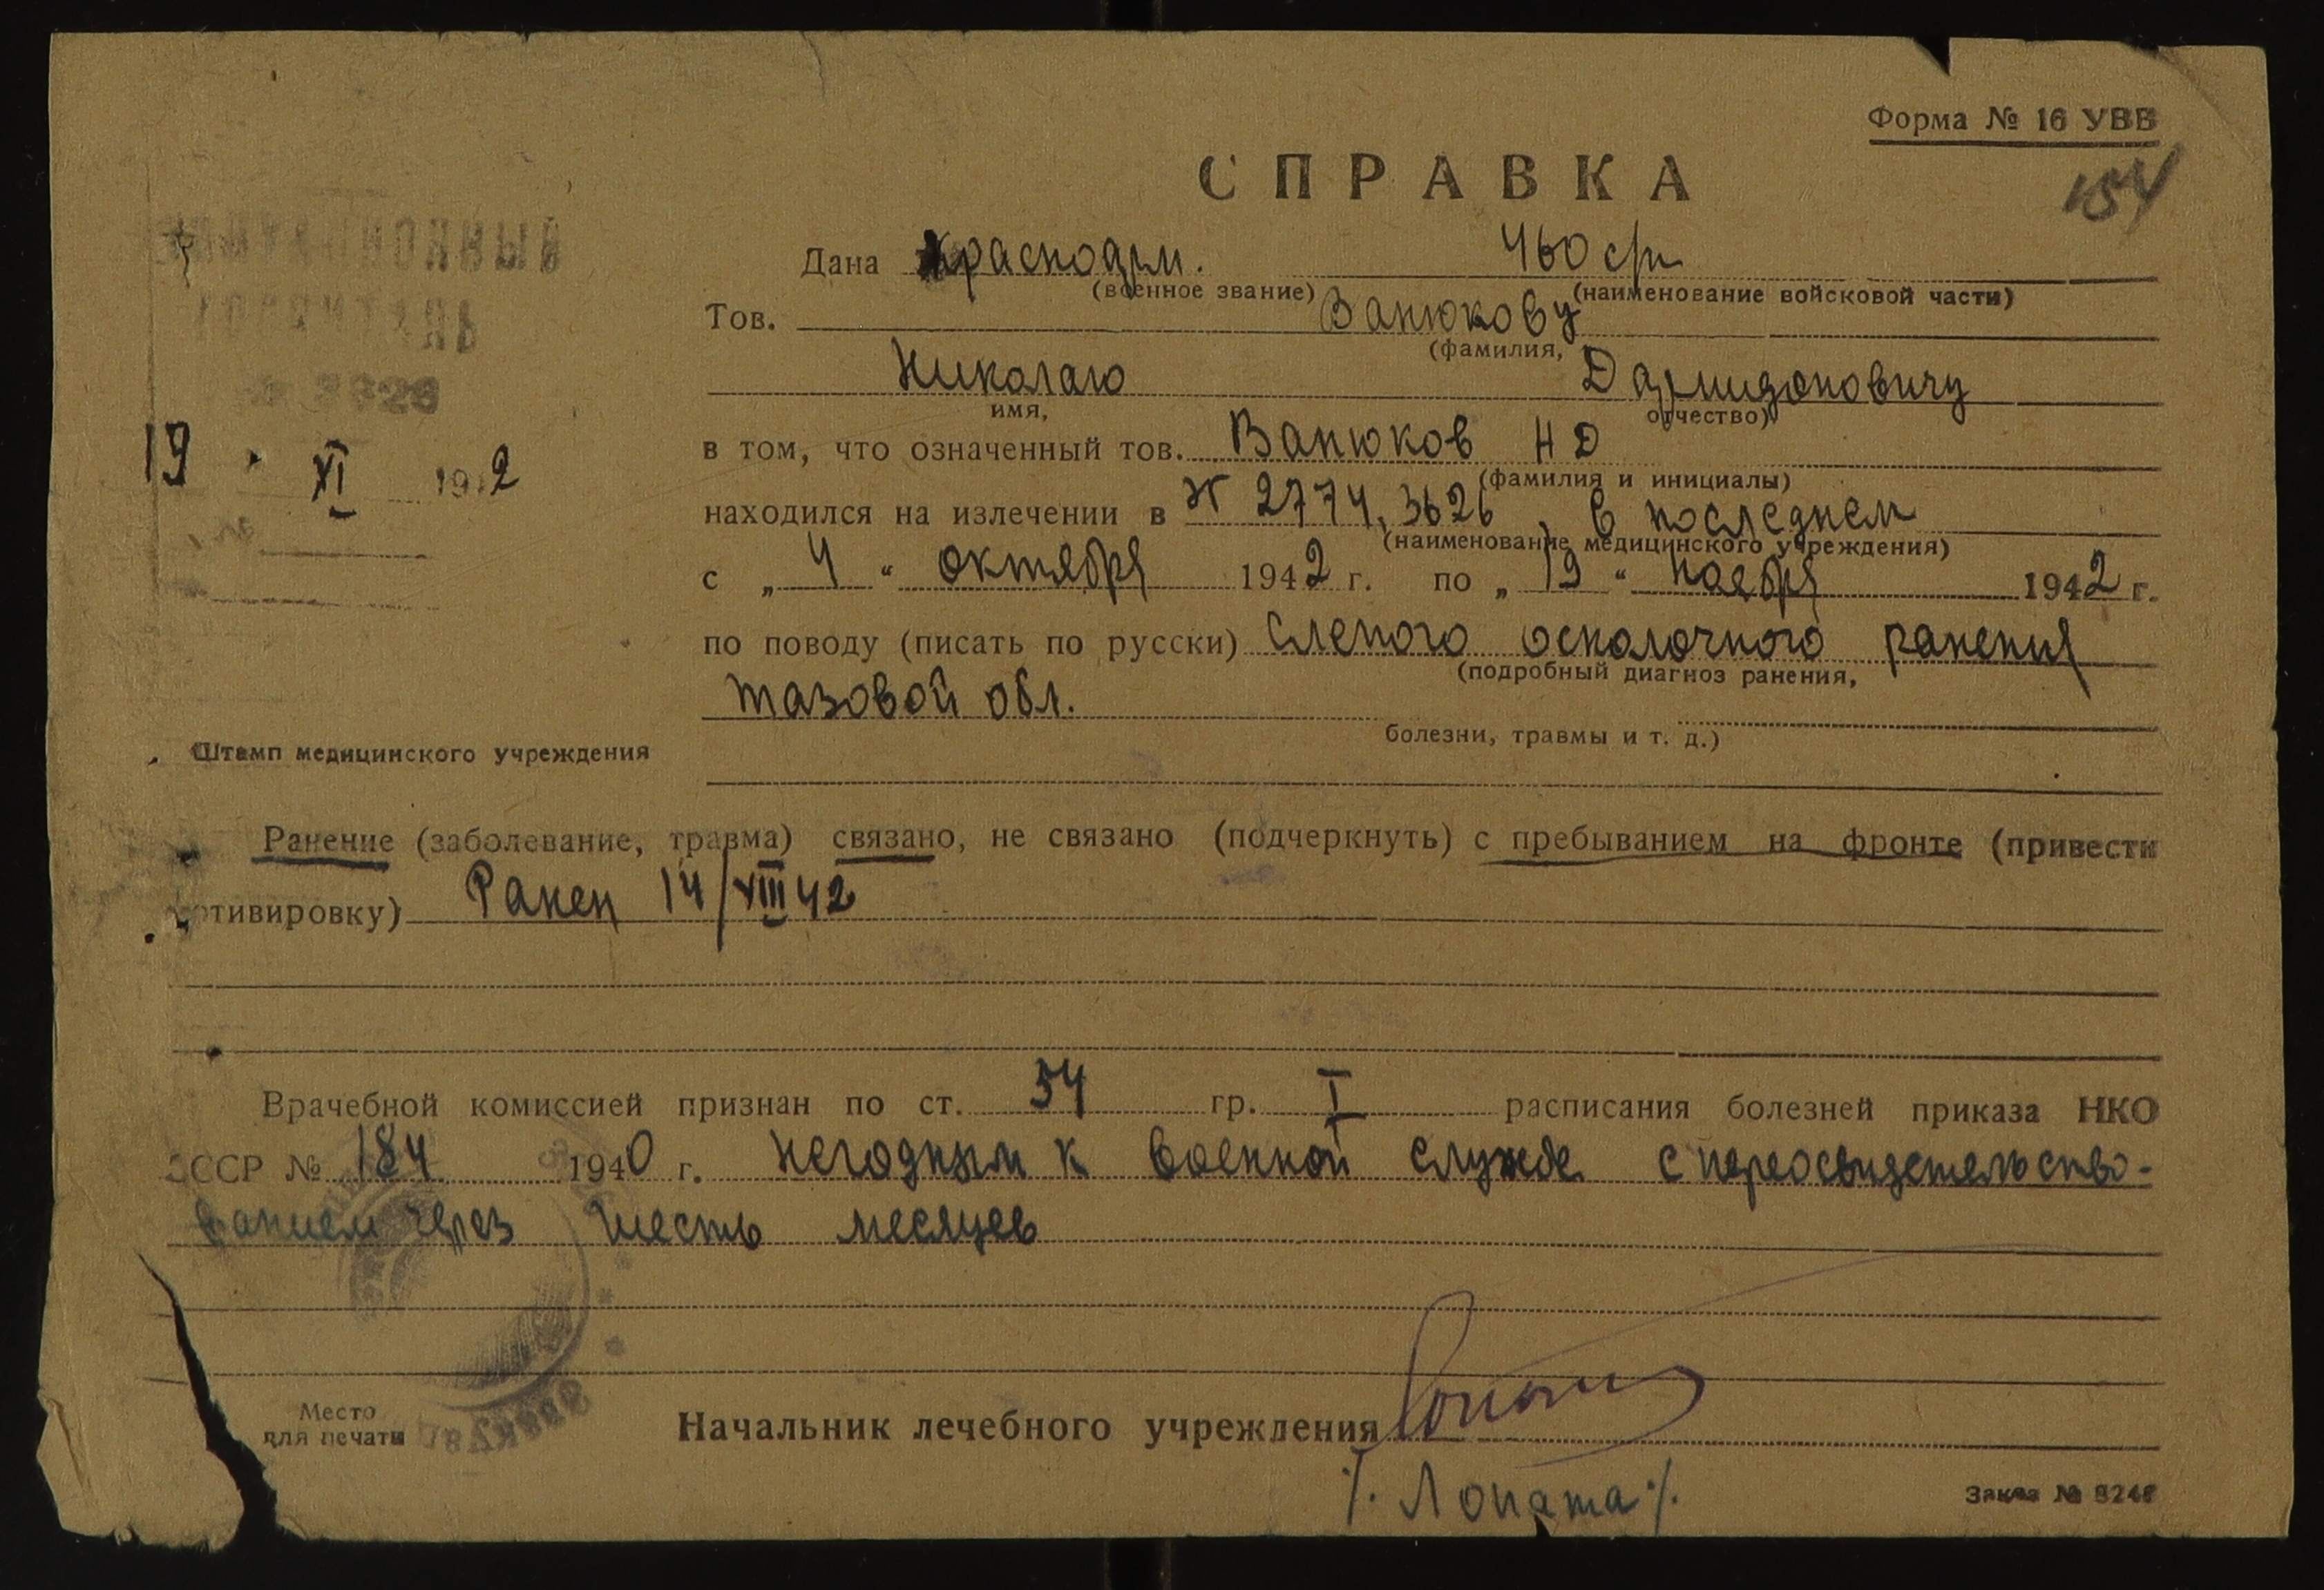 Форма № 16 УВВ
154
СПРАВКА
Дана Красноарм. 460 сп
(военное звание) (наименование войсковой части)
Тов. Ванюкову
(фамилия,
Николаю Дармидоновичу
имя, отчество)
в том, что означенный тов. Ванюков Н Д
(фамилия и инициалы)
19 XI 1942
находился на излечении в 2774, 3626, в последнем
(наименование медицинского учреждения)
с „ 4 “ октября 1942 г. по „ 19 “ ноября 1942 г.
по поводу (писать по русски) слепого осколочного ранения
(подробный диагноз ранения,
тазовой обл.
болезни, травмы и т. д.)
Штамп медицинского учреждения
Ранение (заболевание, травма) связано, не связано (подчеркнуть) с пребыванием на фронте (привести
мотивировку) Ранен 14/VIII 42
Врачебной комиссией признан по ст. 34 гр. I расписания болезней приказа НКО
СССР № 184 1940 г. негодным к военной службе с переосвидетельство-
ванием через шесть месяцев
Место
для печати
Начальник лечебного учреждения
/. Лопата /.
Заказ №